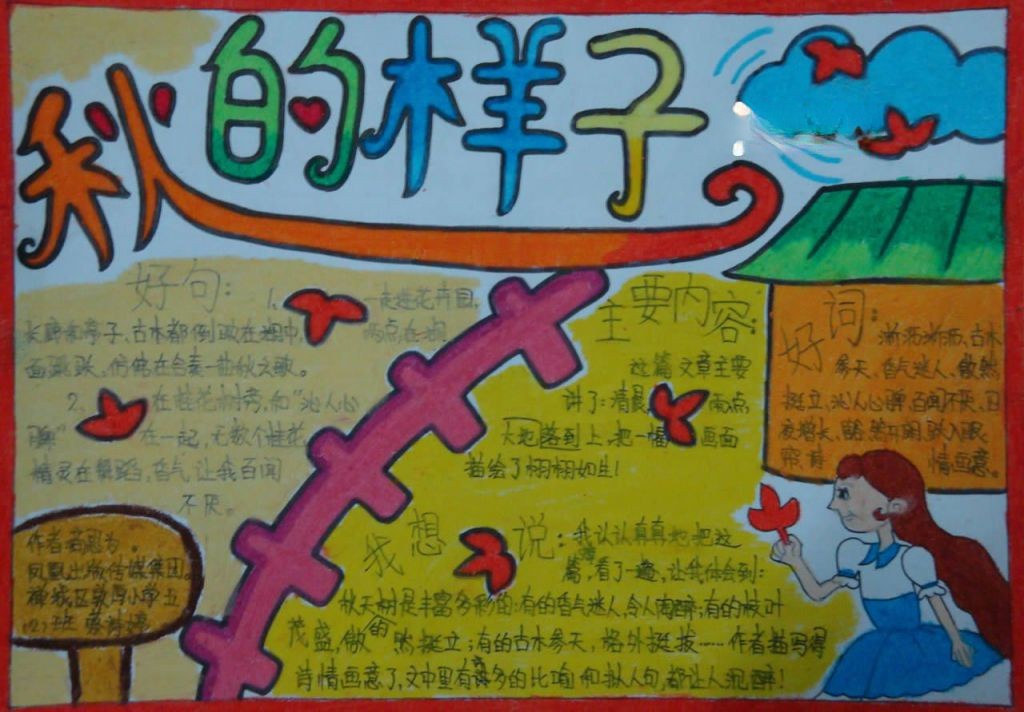 秋的样子
好句:
1、一走进花卉园,
长廊和亭子、古木都倒映在湖中,雨点在湖
面跳跃、仿佛在合奏一曲秋之歌。
2、在桂花树旁,和“沁人心
脾”在一起,无数个桂花
精灵在舞蹈,香气让我百闻
不厌。
主要内容:
这篇文章主要
讲了:清晨,雨点
大地落到上,把一幅画面
描绘了栩栩如生!
好词:
淅沥淅沥、古木
参天、香气迷人、傲然
挺立、沁人心脾、百闻不厌、日
情画意。
我想说:
我认认真真地把这
篇,看了一遍,让我体会到:
秋天树是丰富多彩的:有的香气迷人,令人陶醉;有的枝叶
茂盛,傲的然挺立;有的古木参天,格外挺拔……作者描写得
诗情画意了,文中里有许多的比喻和拟人句,都让人沉醉!
作者
凤凰出版传媒集团。
小学五
(2)班